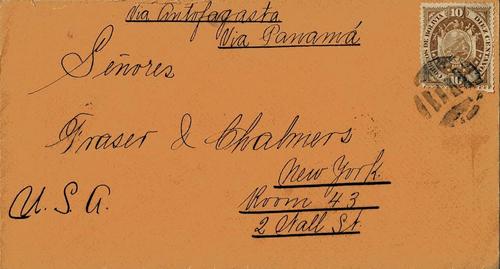 Via Antofagasta
Via Panamá
CORREOS DE BOLIVIA
10
10
DIEZ CENTAVOS
Señores
Fraser & Chalmers
New York.
U.S.A.
Room 43
2 Wall St.